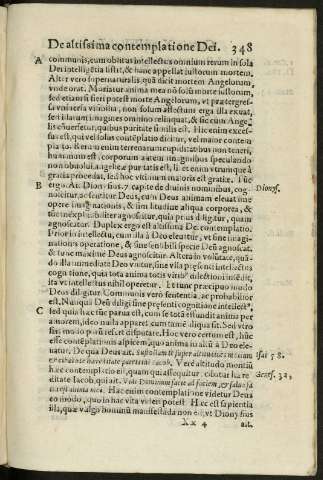 De altissima contemplatione Dei. 348
A communis, cum oblitus intellectus omnium rerum in sola
Dei intelligētia sistit, & hanc appellat iustorum mortem.
Alter vero supernaturalis, quā dicit mortem Angelorum,
vnde orat. Moriatur anima mea nō solū morte iustorum,
sed etiam si fieri potest morte Angelorum, vt prætergres-
sa vniuersa visibilia, non solum affectum erga illa exuat,
sed illarum imagines omnino relinquat, & sic cum Ange-
lis cōuersetur, quibus puritate similis est. Hic enim exces-
sus est, qui vel solus contēplatio dicitur, vel maior contem-
platio. Rerum enim terrenarum cupiditatibus non teneri,
humanum est; corporum autem imaginibus speculando
non obuolui, angelicæ puritatis est; licet enim vtrumque à
gratia procedat, sed hoc vltimum maioris est gratiæ. Hic
B ergo. At Dion. sius. 7. capite de diuinis nominibus, cog- Dionys.
noscitur, ac sentitur Deus, cum Deus animam eleuat sine
opere imaginationis, & similitudine aliqua corporea, &
sic inexplicabiliter agnoscitur, quia prius diligitur, quam
agnoscatur. Duplex ergo est altissima Dei contemplatio.
Prior in intellectu, cum illa à Deo eleuatur, vt sine imagi-
nationis operatione, & sine sensibili specie Deū agnoscat.
& tunc maxime Deus agnoscitur. Altera in volūtate, quā-
do illa immediate Deo vnitur, sine vlla præsenti intellectus
cognitione, quia tota anima totis viribus dilectioni intēdit,
ita vt intellectus nihil operetur. Et tunc præcipuo modo
Deus diligitur. Communis verò sententia, ac probabilior
est, Nunquā Deū diligi sine præsenti cognitione intellectus,
C sed quia hæc tūc parua est, cum se tota effundit anima per
amorem, ideo nulla apparet cum tamē aliqua sit. Sed vero
sit modo possit esse, disputate. Hoc vero certum est, huic
esse contēplationis apicem, quo anima in altū à Deo ele-
uatur. De qua Deus ait. Sustollam te super altitudines terræ Isai 58.
& cibabo te hæreditate patris tui Iacob. Verè altitudo montiū
hæc contemplatio est, quam qui assequitur, cibatur hæ-
reditate Iacob, qui ait. Vidi Dominum facie ad faciem, & salua fa- Genes. 32,
cta est anima mea. Hac enim contemplatione videtur Deus
eo modo, quo in hac vita videri potest. Hæc est sapientia
illa, quæ vulgo hominū manifestada non est, vt Dionysius
Xx 4 ait.